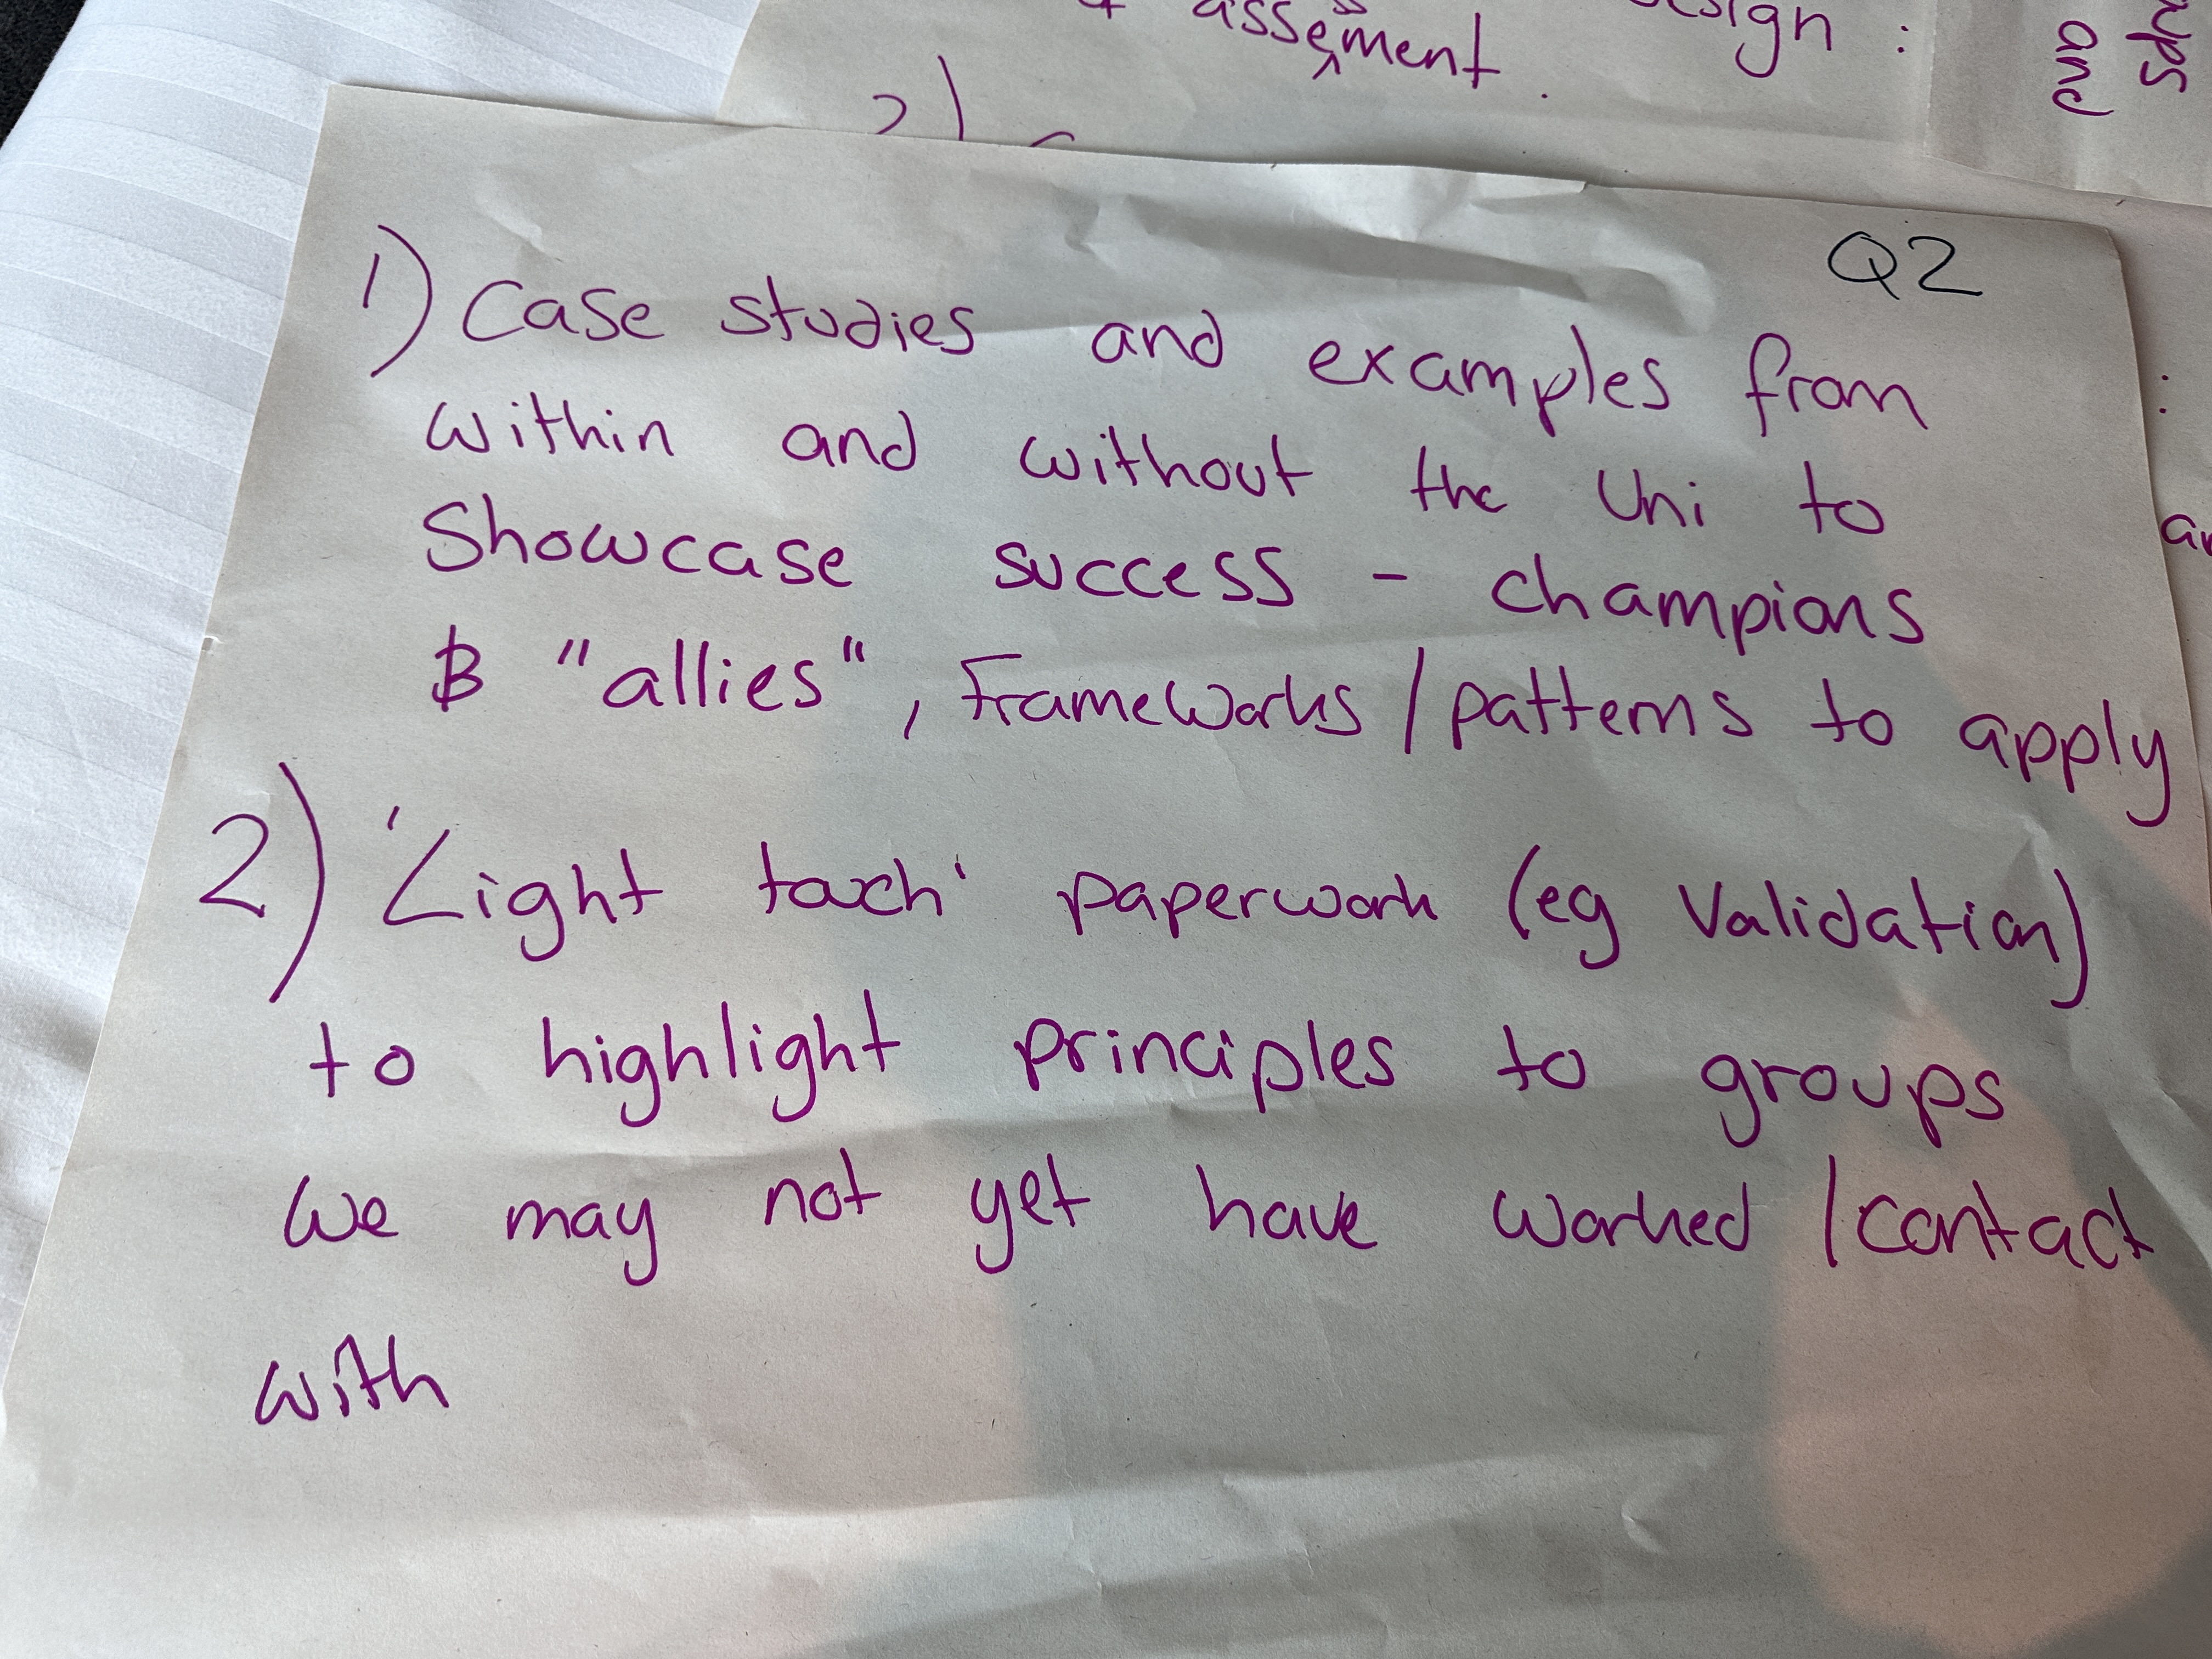 assesment.
sign :
ups
and
2)
Q2
1) Case studies and examples from
within and without the Uni to
Showcase success - champions
& "allies", Frameworks / patterns to apply
2) 'Light touch' paperwork (eg Validation)
to highlight principles to groups
we may not yet have worked / contact
with